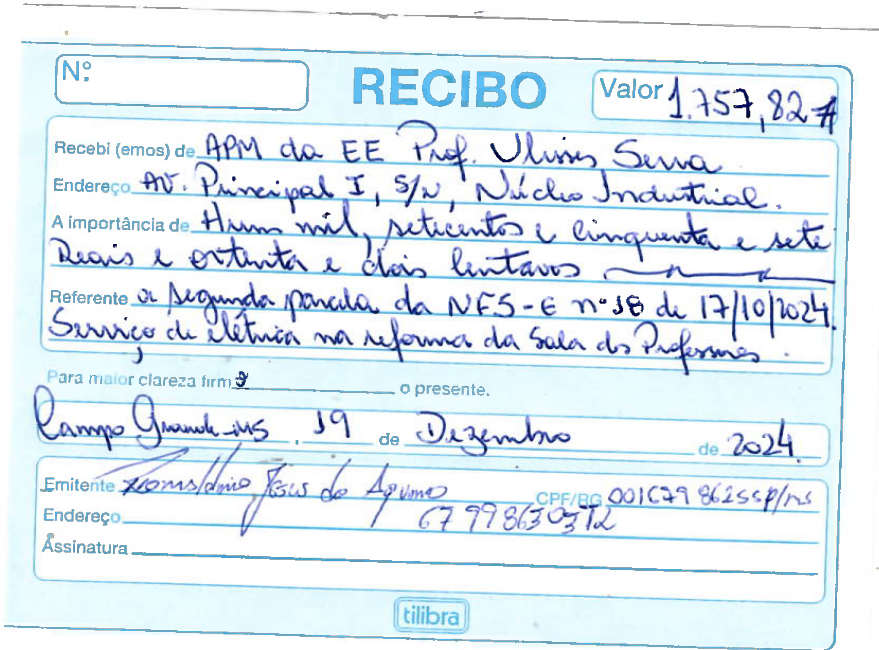 Nº
RECIBO
Valor 1.757,82 #
Recebi (emos) de APM da EE Prof. Ulisses Serra
Endereço AV. Principal I, S/N, Núcleo Industrial.
A importância de Hum mil, setecentos e cinquenta e sete
Reais e oitenta e dois Centavos
Referente a segunda parcela da NFS-E nº 18 de 17/10/2024.
Serviço de elétrica na reforma da Sala dos Professores.
Para maior clareza firm o o presente.
Campo Grande-MS, 19 de Dezembro de 2024.
Emitente Jesus de Aquino CPF/RG 001679862SSP/MS
Endereço
Assinatura
tilibra